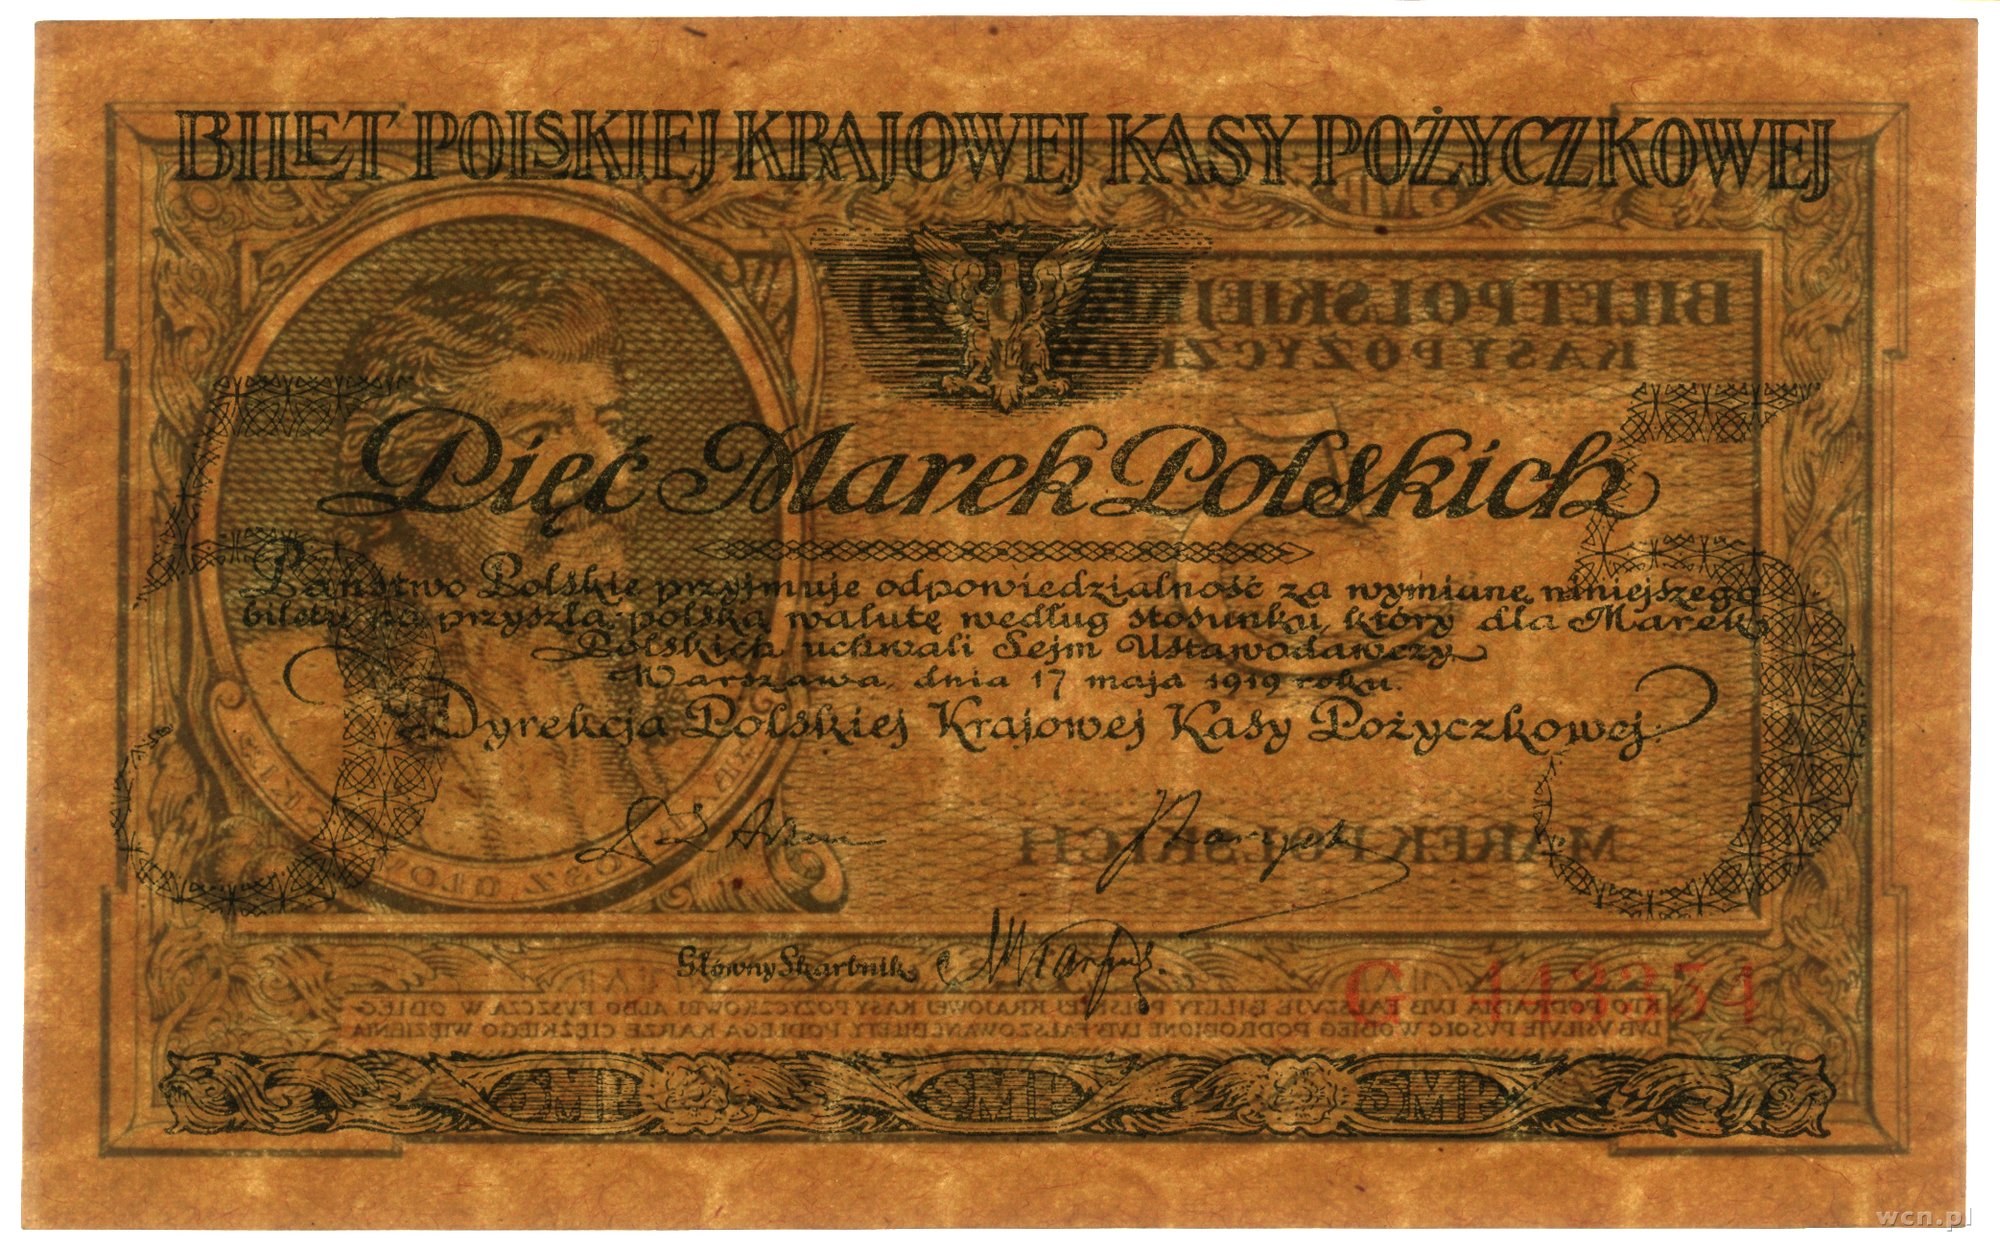 BILET POLSKIEJ KRAJOWEJ KASY POŻYCZKOWEJ
BILET POLSKIEJ
KASY POŻYCZK
Pięć Marek Polskich
Państwo Polskie przyjmuje odpowiedzialność za wymianę niniejszego
biletu na przyszłą polską walutę według stosunku, który dla Marek
Polskich uchwali Sejm Ustawodawczy
Warszawa, dnia 17 maja 1919 roku.
Dyrekcja Polskiej Krajowej Kasy Pożyczkowej.
5 5
MAREK POLSKICH
Główny Skarbnik
G 448354
KTO PODRABIA LUB FAŁSZUJE BILETY POLSKIEJ KRAJOWEJ KASY POŻYCZKOWEJ ALBO PUSZCZA W OBIEG
LUB USIŁUJE PUŚCIĆ W OBIEG PODROBIONE LUB FAŁSZOWANE BILETY PODLEGA KARZE CIĘŻKIEGO WIĘZIENIA
5MP 5MP 5MP
wcn.pl